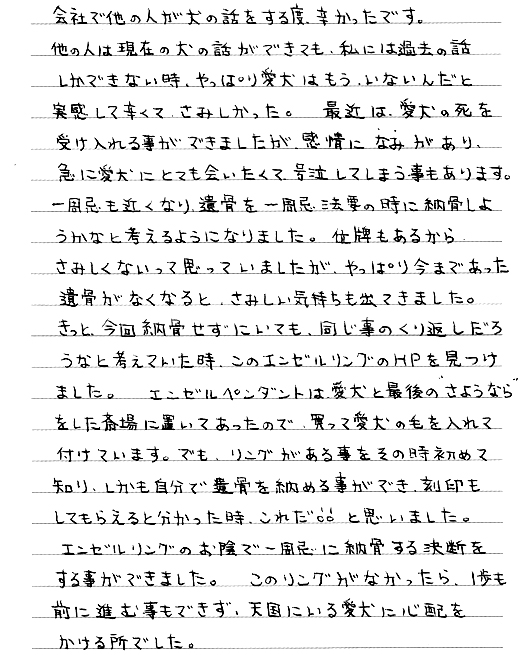 会社で他の人が犬の話をする度、辛かったです。
他の人は現在の犬の話ができても、私には過去の話
しかできない時、やっぱり愛犬はもういないんだと
実感して辛くて、さみしかった。 最近は、愛犬の死を
受け入れる事ができましたが、感情になみがあり、
急に愛犬にとても会いたくて、号泣してしまう事もあります。
一周忌も近くなり、遺骨を一周忌法要の時に納骨しよ
うかなと考えるようになりました。位牌もあるから
さみしくないって思っていましたが、やっぱり今まであった
遺骨がなくなると、さみしい気持ちも出てきました。
きっと、今回納骨せずにいても、同じ事のくり返しだろ
うなと考えていた時、このエンゼルリングのHPを見つけ
ました。 エンゼルペンダントは愛犬と最後の"さようなら"
をした斎場に置いてあったので、買って愛犬の毛を入れて
付けています。でも、リングがある事をその時初めて
知り、しかも自分で遺骨を納める事ができ、刻印も
してもらえると分かった時、これだ!!と思いました。
エンゼルリングのお陰で一周忌に納骨する決断を
する事ができました。 このリングがなかったら、1歩も
前に進む事もできず、天国にいる愛犬に心配を
かける所でした。